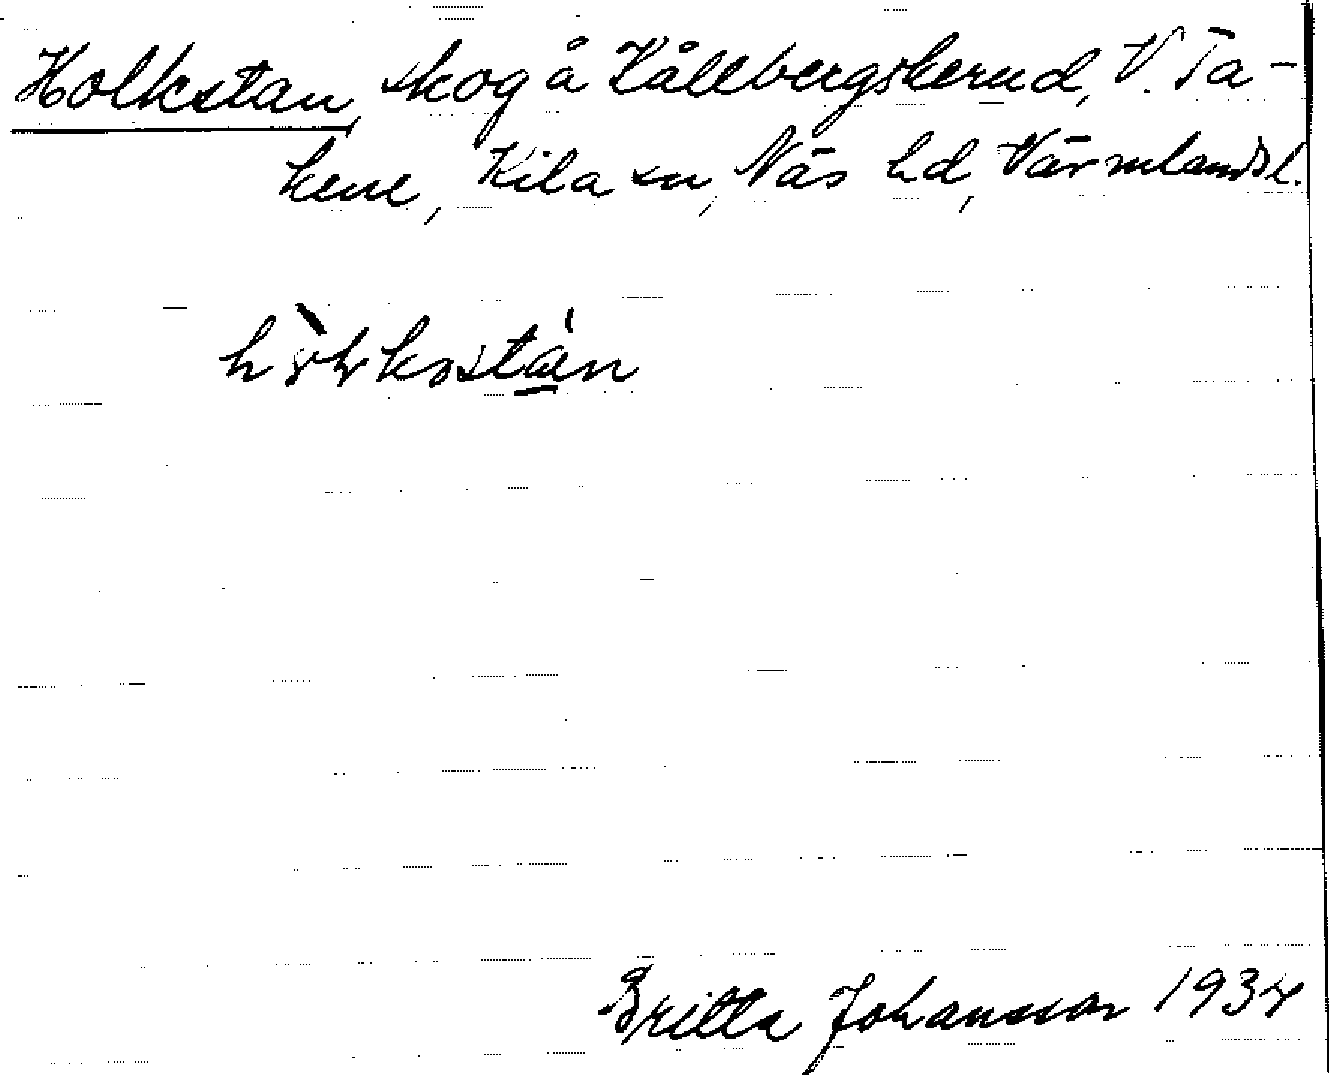 Holkstan, skog å Kållbergskerud, V. Ta-
kene, Kila sn, Näs hd, Värmlands l.
Britta Johansson 1934